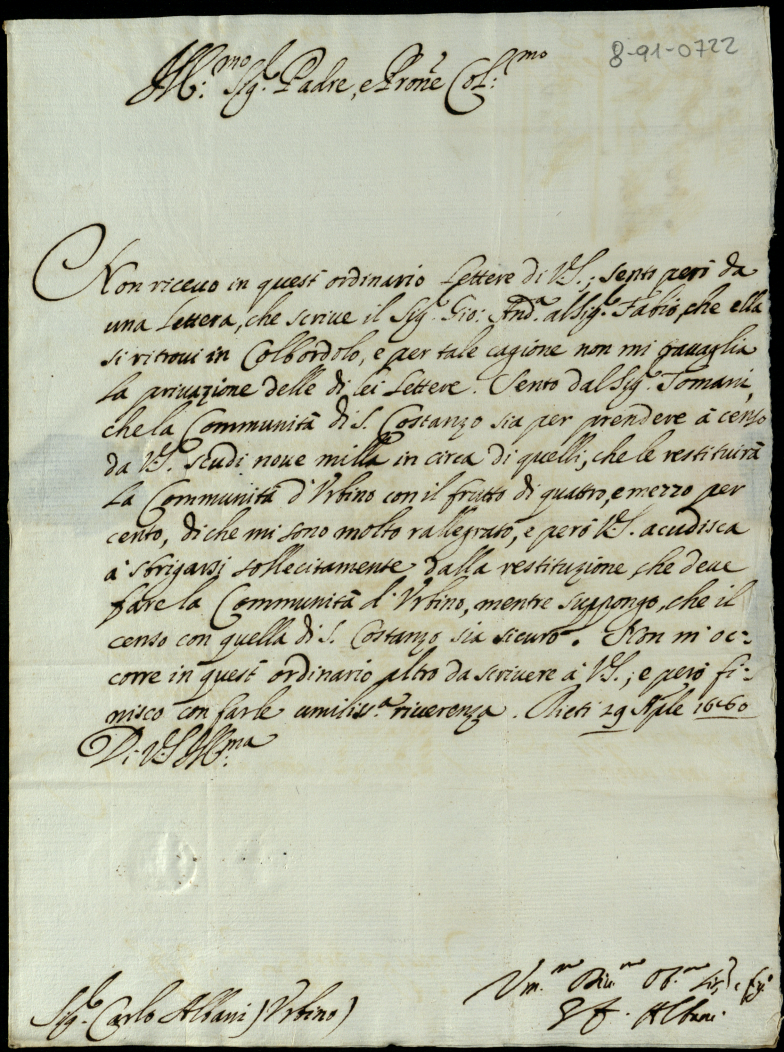 8-91-0722
Ill:mo Sig.r Padre, e Prone Col:mo
Non riceuo in quest' ordinario Lettere di V.S.; sento però da
una Lettera, che scriue il Sig.r Gio: And.a al Sig.r Fabio, che ella
si ritroui in Colbordolo, e per tale cagione non mi trauaglia
la priuazione delle di lei Lettere. Sento dal Sig.r Tomari,
che la Communità di S. Costanzo sia per prendere à censo
da V.S. scudi noue milla in circa di quelli, che le restituirà
la Communità d'Urbino con il frutto di quattro, e mezzo per
cento, di che mi sono molto rallegrato, e però V.S. acudisca
à sbrigarsi sollecitamente dalla restituzione, che deue
fare la Communità d'Urbino, mentre suppongo, che il
censo con quella di S. Costanzo sia sicuro. Non m'oc=
corre in quest' ordinario altro da scriuere à V.S.; e però fi=
nisco con farle umiliss.a riuerenza. Rieti 29 Aple 1660
Di V.S. Ill:ma
Um.mo Diu.mo Ob.mo
Albani
Sig.r Carlo Albani (Urbino)